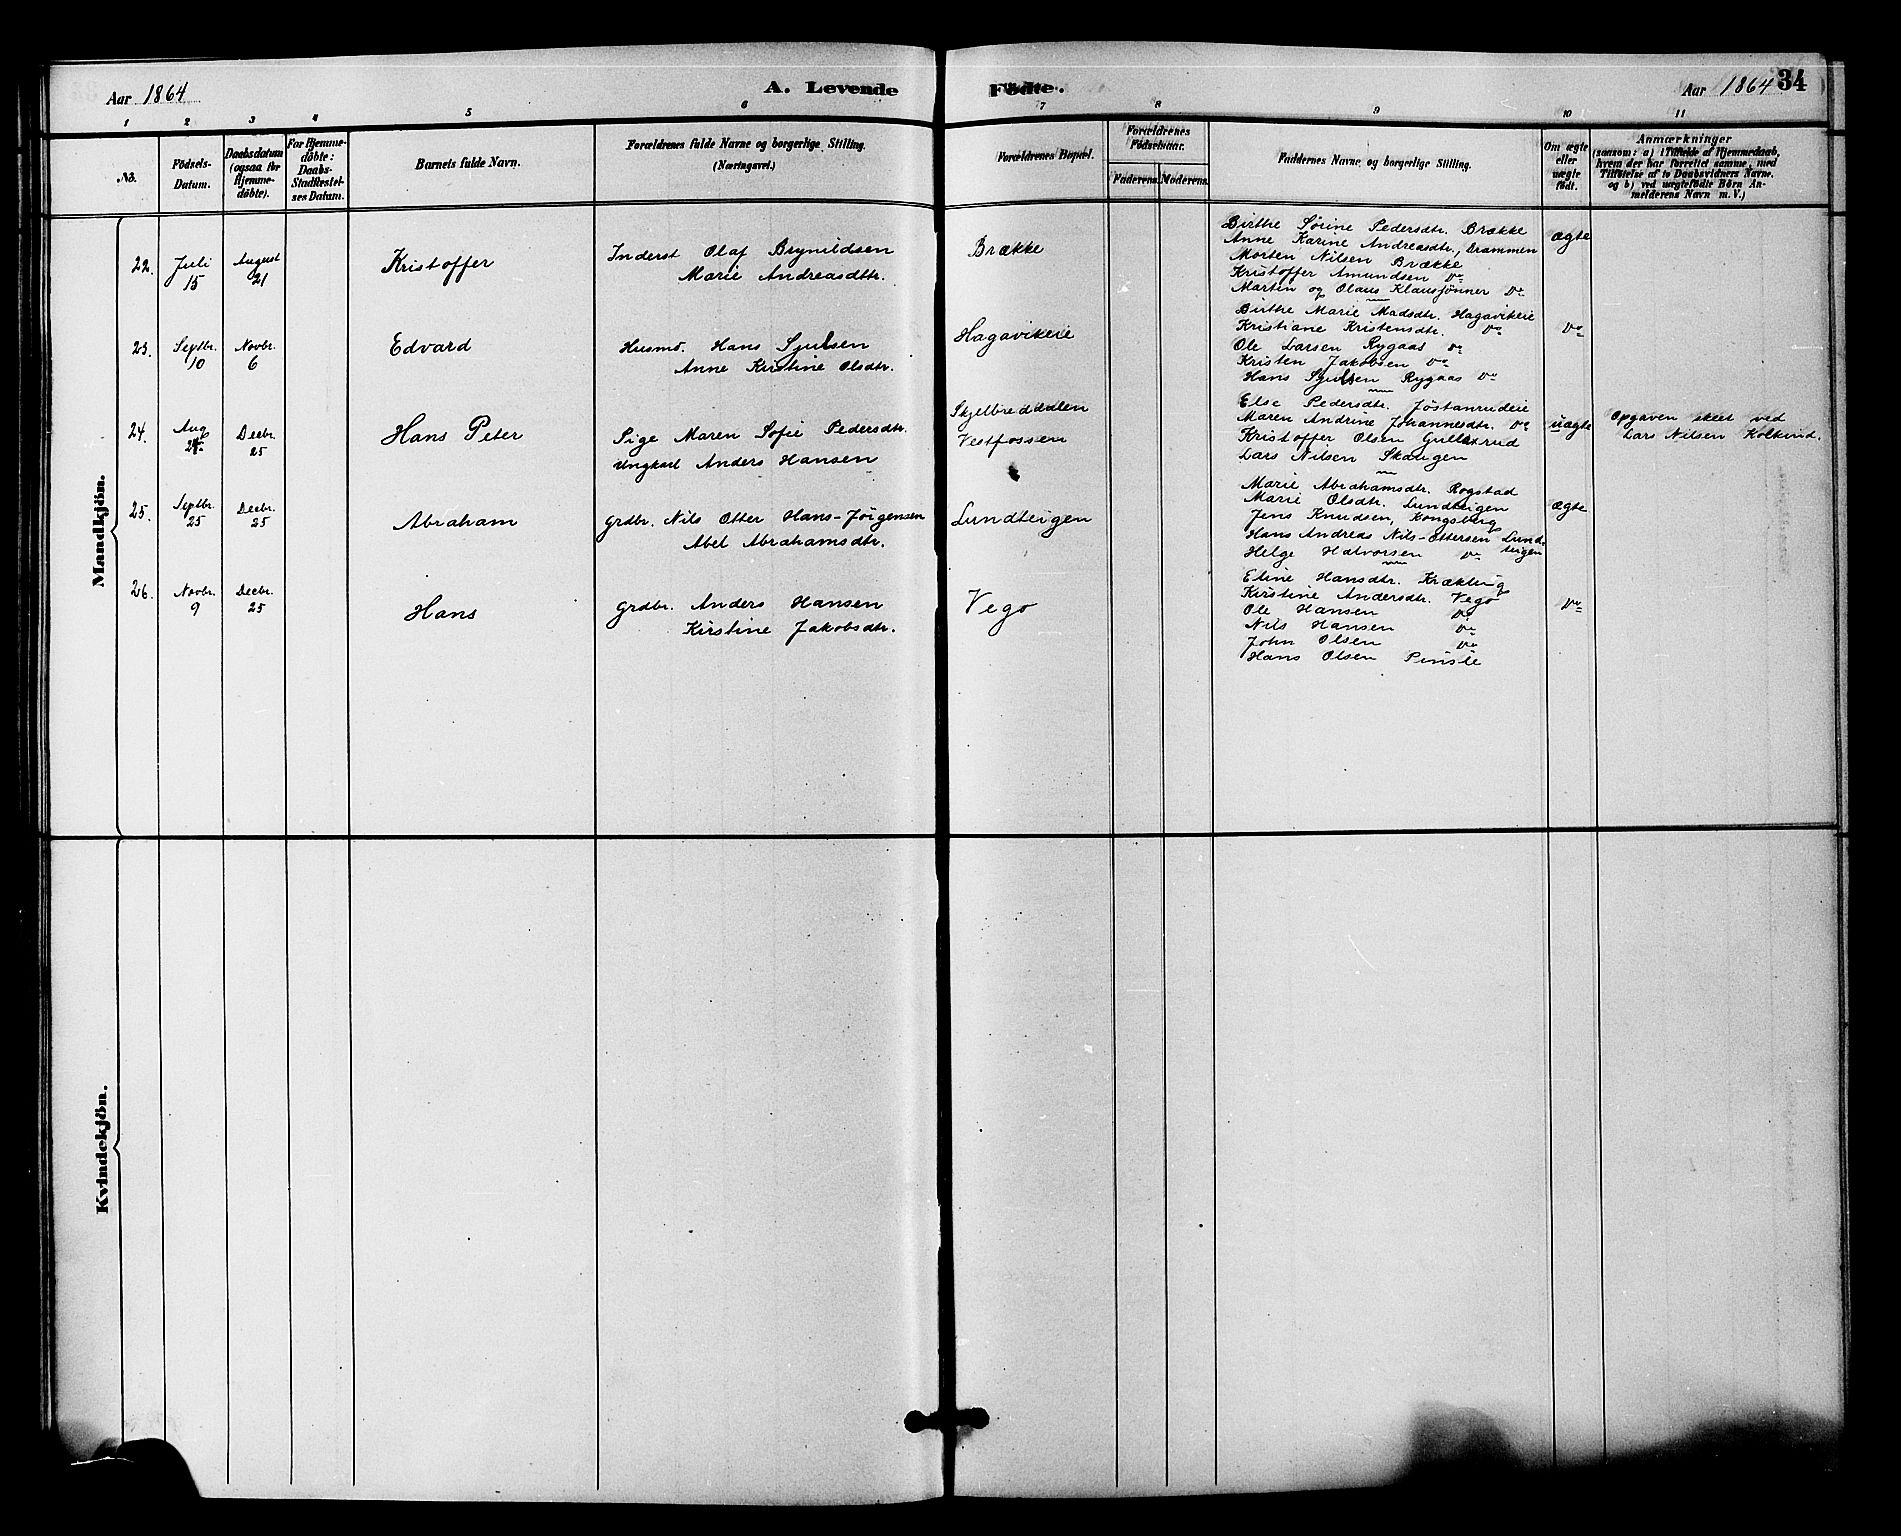 Aar 1864
A. Levende
Födte.
Aar 1864
34
1 2 3 4 5 6 7 8 9 10 11
No.
Födsels-
Datum.
Daabsdatum
(ogsaa for
Hjemme-
döbte).
For Hjemme-
döbte:
Daabs-
Stadfæstel-
ses Datum.
Barnets fulde Navn.
Forældrenes fulde Navne og borgerlige Stilling.
(Næringsvei.)
Forældrenes Bopæl.
Forældrenes
Födselsaar.
Faderens. Moderens.
Faddernes Navne og borgerlige Stilling.
Om ægte
eller
uægte
født.
Anmærkninger
(saasom: a) i Tilfælde af Hjemmedaab,
hvem der har forrettet samme, med
Tilföielse af to Daabsvidners Navne,
og b) ved uægtefödte Börn An-
melderens Navn m. V.)
Mandkjön.
22.
Juli
15
August
21
Kristoffer
Inderst Olaf Brynildsen
Marie Andreasdtr.
Brække
Birthe Sörine Pedersdtr. Brække
Anne Karine Andreasdtr, Drammen
Morten Nilsen Brække
Kristoffer Amundsen Do
Martin og Olaus Klausjönner Do
ægte
23.
Septbr.
10
Novbr.
6
Edvard
Husmd. Hans Sjulsen
Anne Kirstine Olsdtr.
Hagavikeie
Birthe Marie Madsdtr. Hagavikeie
Kristiane Kristensdtr. Do
Ole Larsen Rygaas Do
Kristen Jakobsen Do
Hans Sjulsen Rygaas Do
Do
24.
Aug
Decbr.
25
Hans Peter
Pige Maren Sofie Pedersdtr.
Ungkarl Anders Hansen
Skjelbreddalen
Vestfossen
Else Pedersdtr. Jöstanrudeie
Maren Andrine Johannesdtr. Do
Kristoffer Olsen Gullerud
Lars Nilsen Skaugen
uægte
Opgaven skeet ved
Lars Nilsen Kolkind.
25.
Septbr.
25
Decbr.
25
Abraham
Grdbr. Nils Otter Hans-Jörgensen
Abel Abrahamsdtr.
Lundteigen
Marie Abrahamsdtr. Rogstad
Marie Olsdtr. Lundteigen
Jens Knudsen, Kongsberg
Hans Andreas Nils-Ottersen Lund-
teigen
Helge Halvorsen Do
ægte
26.
Novbr.
9
Decbr.
25
Hans
Grdbr. Anders Hansen
Kirstine Jakobsdtr.
Vego
Eline Hansdtr. Krækling
Kirstine Andersdtr. Vego
Ole Hansen Do
Nils Hansen Do
John Olsen Do
Hans Olsen Pinsle
Do
Kvindekjön.